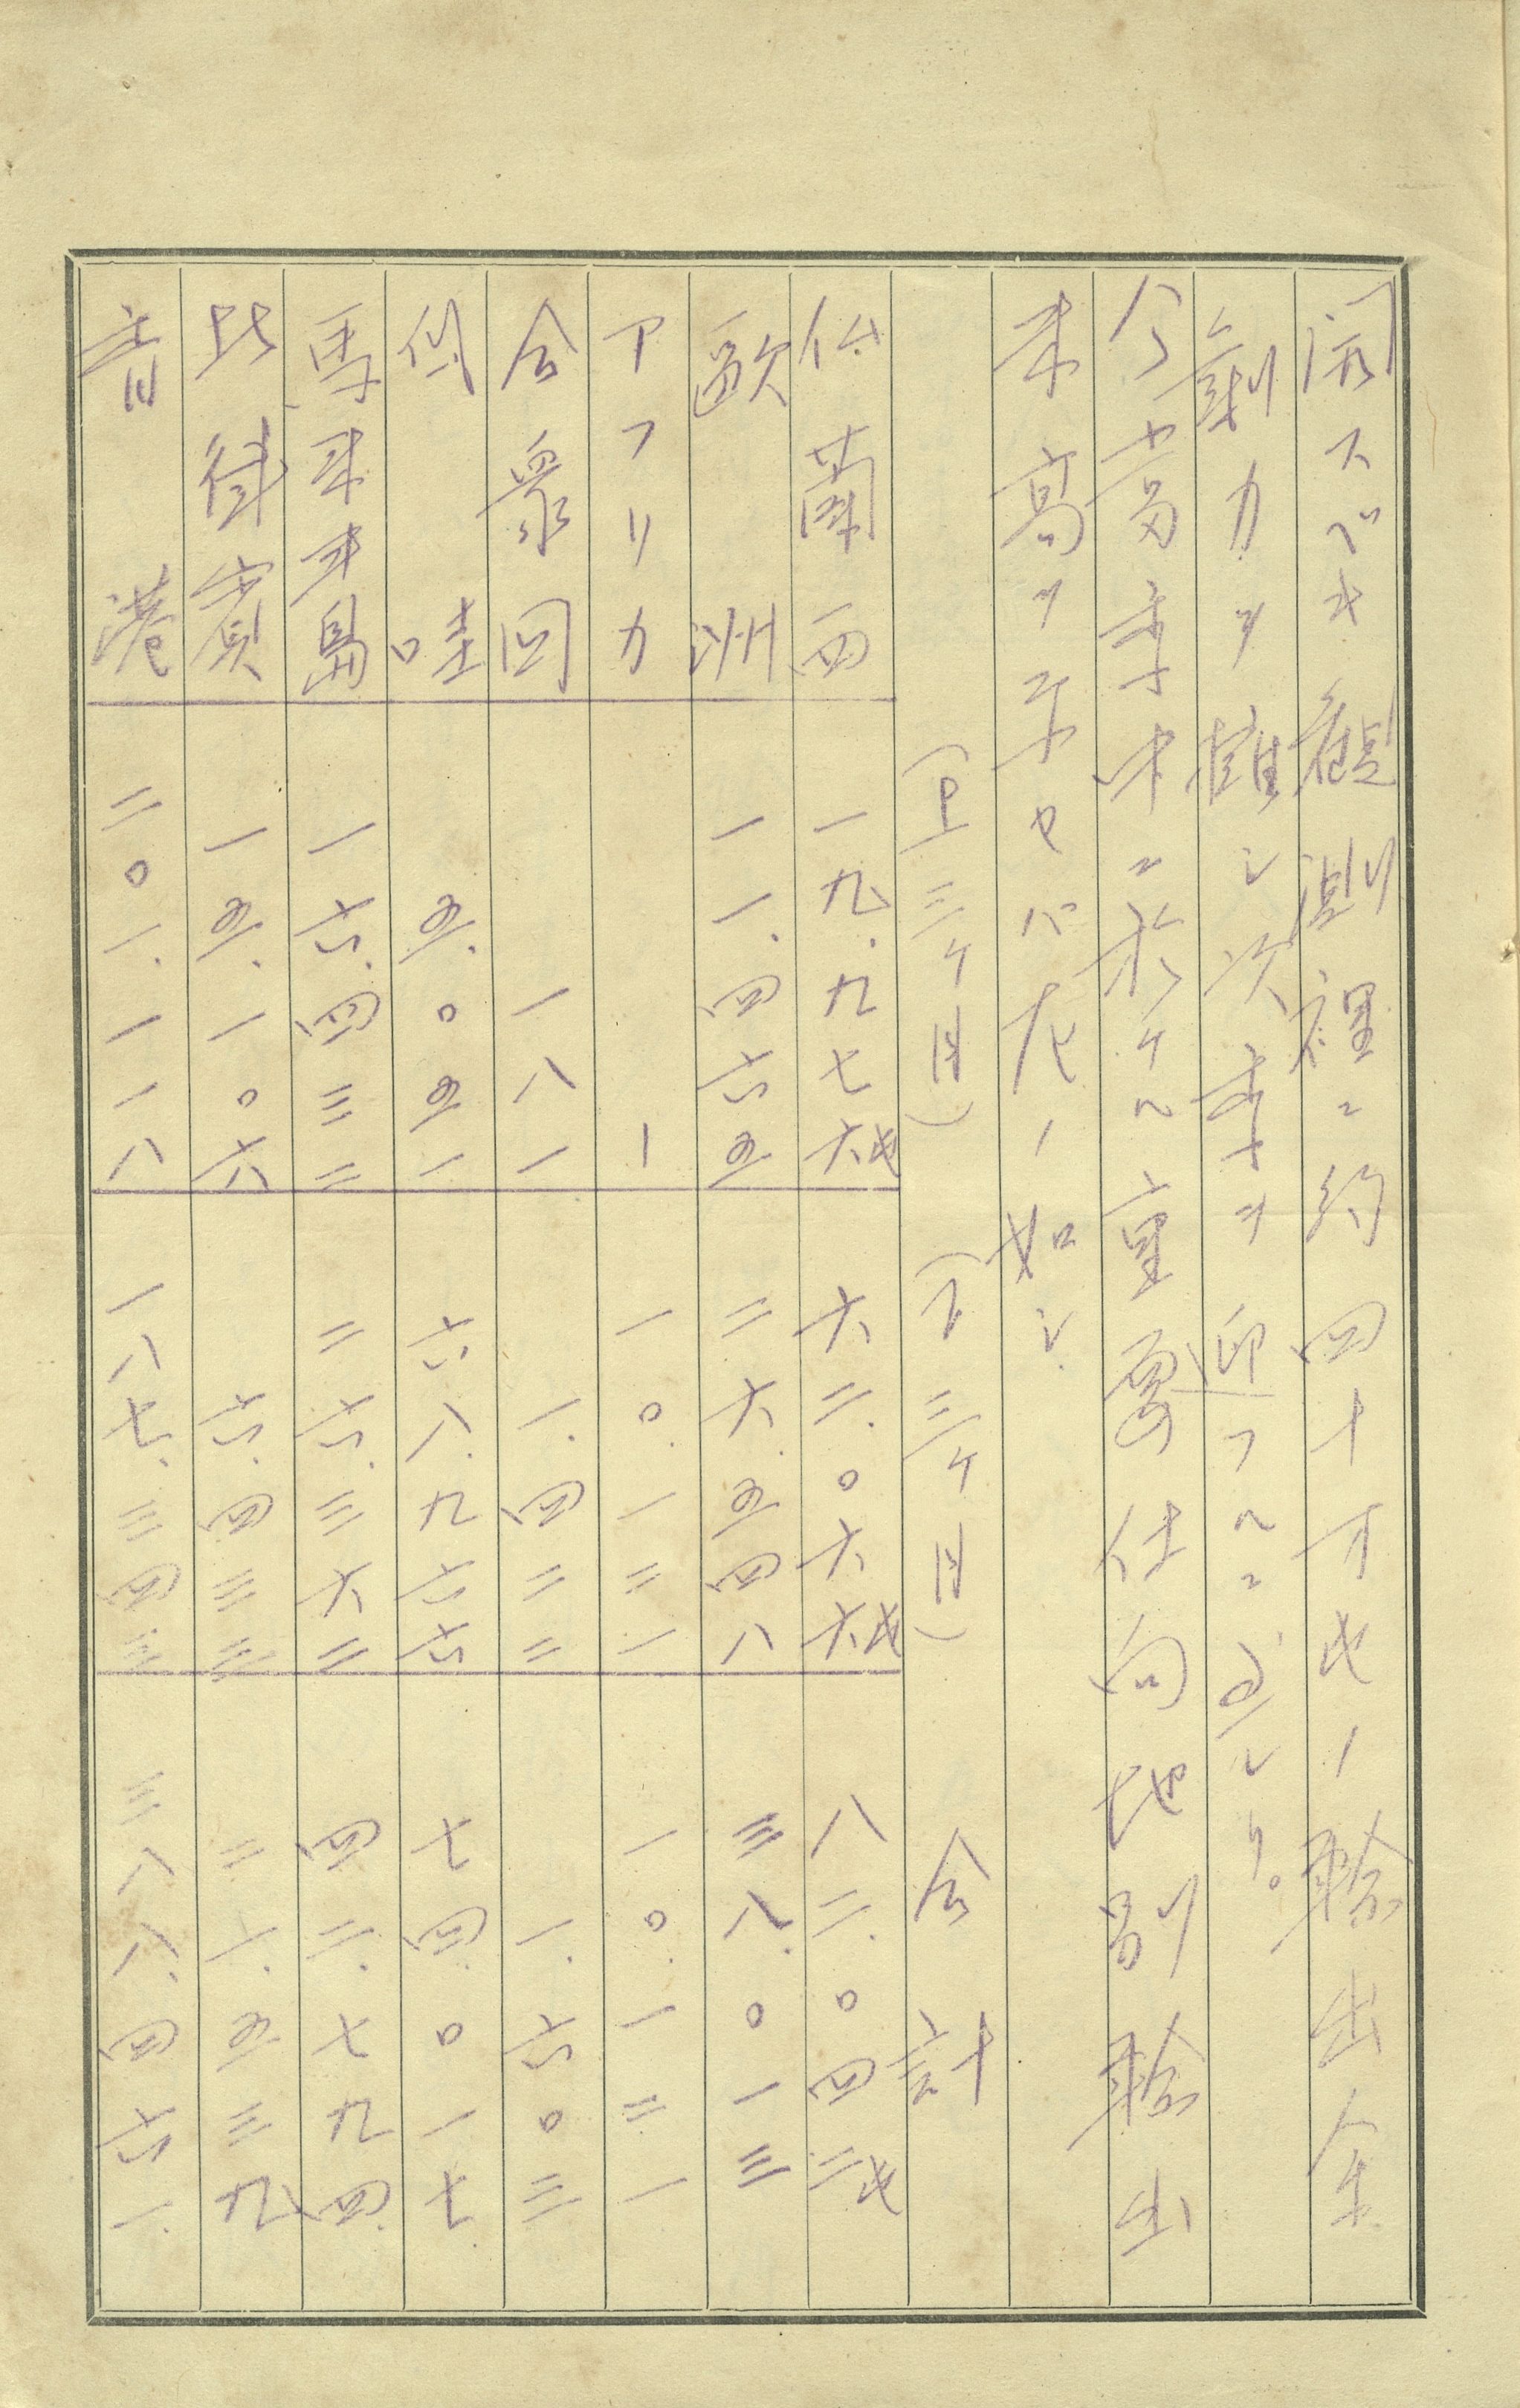 開スベキ観測裡ニ約四十万屯ノ輸出余
剰力ヲ擁シ次季ヲ迎フルニ至レリ。
今当季中ニ於ケル重要仕向地別輸出
米高ヲ示セバ左ノ如シ.
(上三ヶ月) (下三ヶ月) 合計
仏蘭西 一九.九七六屯 六二.〇六六屯 八二.〇四二屯
欧洲 一一.四六五 二六.五四八 三八.〇一三
アフリカ ー 一〇.一二一 一〇.一二一
合衆国 一八一 一.四二二 一.六〇三
爪哇 五.〇五一 六八.九六六 七四.〇一七
馬来半島 一六.四三二 二六.三六二 四二.七九四
比律賓 一五.一〇六 六.四三三 二一.五三九
香港 二〇一.一一八 一八七.三四三 三八八.四六一